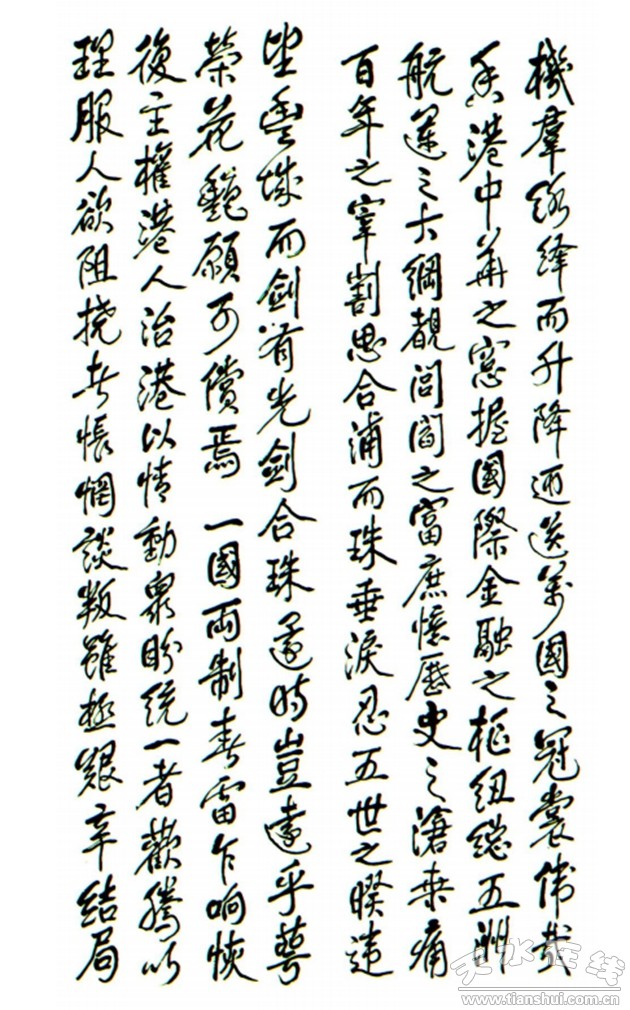 機羣絡绎而升降迎送萬國之冠裳偉哉
香港中華之窓握國際金融之樞纽總五洲
航運之大綱覩閭閻之富庶懷歷史之滄桑痛
百年之宰割思合浦而珠垂淚忍五世之暌違
望豐城而劍有光劍合珠還時豈遠乎萼
榮花艷願可償焉 一國両制春雷乍响恢
復主權港人治港以情動衆盼統一者歡騰以
理服人欲阻撓者悵惘談叛雖極艱辛结局
天水在线
www.tianshui.com.cn